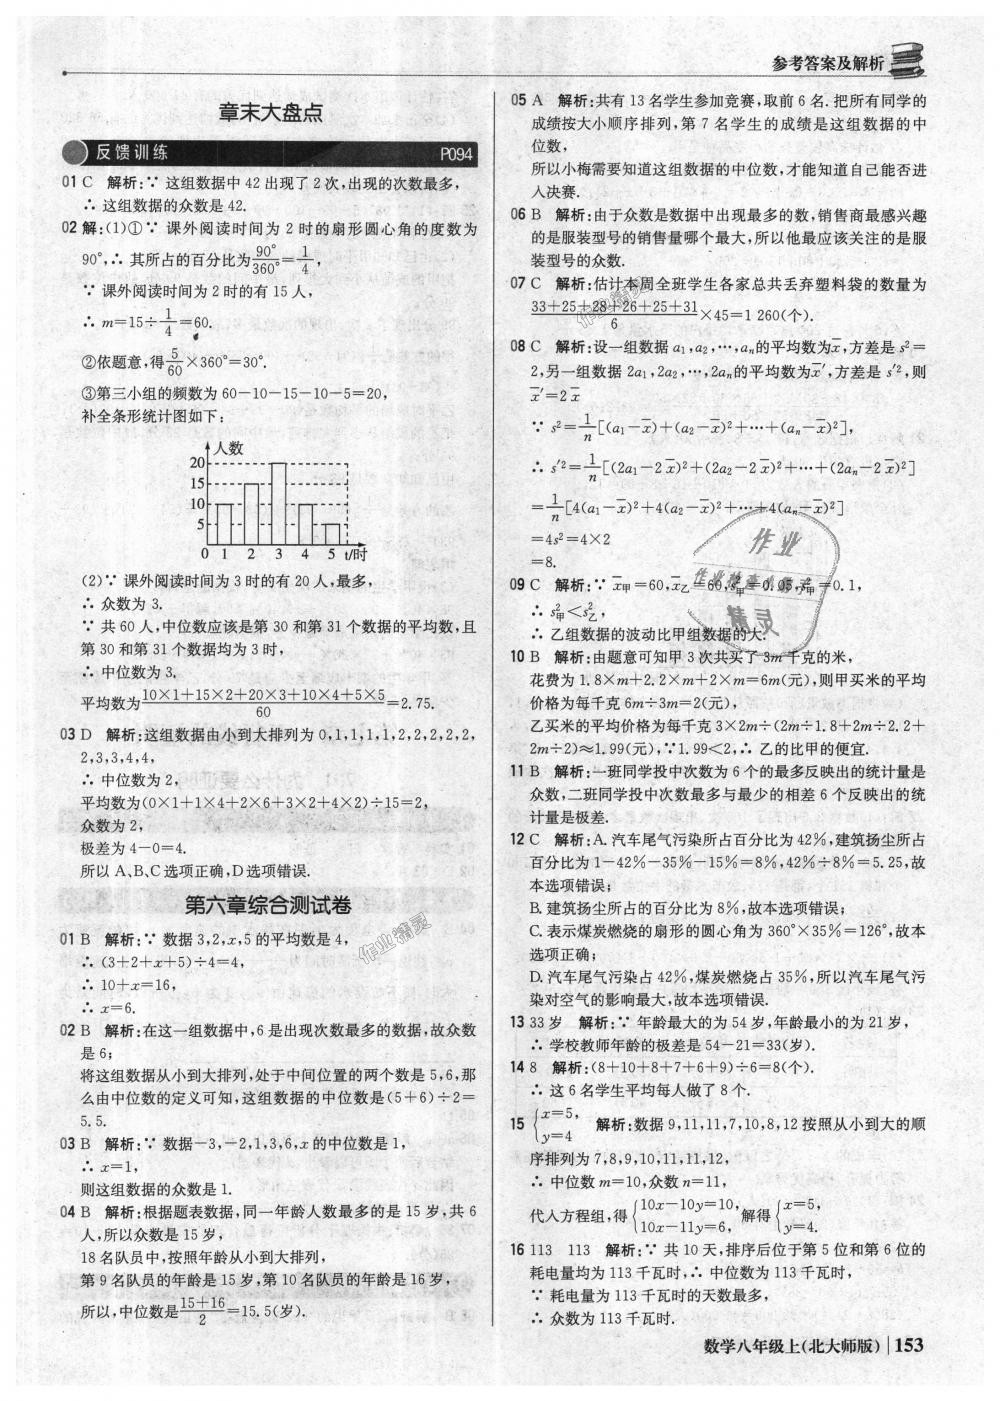 参考答案及解析
章末大盘点
反馈训练 P094
01 C 解析:∵ 这组数据中 42 出现了 2 次,出现的次数最多,
∴ 这组数据的众数是 42.
02 解:(1)①∵ 课外阅读时间为 2 时的扇形圆心角的度数为
90°,∴ 其所占的百分比为90°/360°=1/4,
∵ 课外阅读时间为 2 时的有 15 人,
∴ m=15÷1/4=60.
②依题意,得5/60×360°=30°.
③第三小组的频数为 60-10-15-10-5=20,
补全条形统计图如下:
人数
20
15
10
5
0 1 2 3 4 5 t/时
(2)∵ 课外阅读时间为 3 时的有 20 人,最多,
∴ 众数为 3.
∵ 共 60 人,中位数应该是第 30 和第 31 个数据的平均数,且
第 30 和第 31 个数据均为 3 时,
∴ 中位数为 3,
平均数为(10×1+15×2+20×3+10×4+5×5)/60=2.75.
03 D 解析:这组数据由小到大排列为 0,1,1,1,1,2,2,2,2,2,
2,3,3,4,4,
∴ 中位数为 2,
平均数为(0×1+1×4+2×6+3×2+4×2)÷15=2,
众数为 2,
极差为 4-0=4.
所以 A、B、C 选项正确,D 选项错误.
第六章综合测试卷
01 B 解析:∵ 数据 3,2,x,5 的平均数是 4,
∴ (3+2+x+5)÷4=4,
∴ 10+x=16,
∴ x=6.
02 B 解析:在这一组数据中,6 是出现次数最多的数据,故众数
是 6;
将这组数据从小到大排列,处于中间位置的两个数是 5,6,那
么由中位数的定义可知,这组数据的中位数是(5+6)÷2=
5.5.
03 B 解析:∵ 数据-3,-2,1,3,6,x 的中位数是 1,
∴ x=1,
则这组数据的众数是 1.
04 B 解析:根据题表数据,同一年龄人数最多的是 15 岁,共 6
人,所以众数是 15 岁,
18 名队员中,按照年龄从小到大排列,
第 9 名队员的年龄是 15 岁,第 10 名队员的年龄是 16 岁,
所以,中位数是(15+16)/2=15.5(岁).
05 A 解析:共有 13 名学生参加竞赛,取前 6 名.把所有同学的
成绩按大小顺序排列,第 7 名学生的成绩是这组数据的中
位数,
所以小梅需要知道这组数据的中位数,才能知道自己能否进
入决赛.
06 B 解析:由于众数是数据中出现最多的数,销售商最感兴趣
的是服装型号的销售量哪个最大,所以他最应该关注的是服
装型号的众数.
07 C 解析:估计本周全班学生各家总共丢弃塑料袋的数量为
(33+25+28+26+25+31)/6×45=1 260(个).
08 C 解析:设一组数据 a₁,a₂,…,aₙ的平均数为x̄,方差是 s²=
2,另一组数据 2a₁,2a₂,…,2aₙ的平均数为x̄′,方差是 s′²,则
x̄′=2x̄
∵ s²=1/n[(a₁-x̄)²+(a₂-x̄)²+…+(aₙ-x̄)²],
∴ s′²=1/n[(2a₁-2x̄)²+(2a₂-2x̄)²+…+(2aₙ-2x̄)²]
=1/n[4(a₁-x̄)²+4(a₂-x̄)²+…+4(aₙ-x̄)²]
=4s²=4×2
=8.
09 C 解析:∵ x̄甲=60,x̄乙=60,s²甲=0.05,s²甲=0.1,
∴ s²甲<s²乙,
∴ 乙组数据的波动比甲组数据的大.
10 B 解析:由题意可知甲 3 次共买了 3m 千克的米,
花费为 1.8×m+2.2×m+2×m=6m(元),则甲买米的平均
价格为每千克 6m÷3m=2(元),
乙买米的平均价格为每千克 3×2m÷(2m÷1.8+2m÷2.2+
2m÷2)≈1.99(元),∵1.99<2,∴ 乙的比甲的便宜.
11 B 解析:一班同学投中次数为 6 个的最多反映出的统计量是
众数,二班同学投中次数最多与最少的相差 6 个反映出的统
计量是极差.
12 C 解析:A.汽车尾气污染所占百分比为 42%,建筑扬尘所占
百分比为 1-42%-35%-15%=8%,42%÷8%=5.25,故
本选项错误;
B.建筑扬尘所占的百分比为 8%,故本选项错误;
C.表示煤炭燃烧的扇形的圆心角为 360°×35%=126°,故本
选项正确;
D.汽车尾气污染占 42%,煤炭燃烧占 35%,所以汽车尾气污
染对空气的影响最大,故本选项错误.
13 33 岁 解析:∵ 年龄最大的为 54 岁,年龄最小的为 21 岁,
∴ 学校教师年龄的极差是 54-21=33(岁).
14 8 解析:(8+10+8+7+6+9)÷6=8(个).
∴ 这 6 名学生平均每人做了 8 个.
15 {x=5, y=4 解析:数据 9,11,11,7,10,8,12 按照从小到大的顺
序排列为 7,8,9,10,11,11,12,
∴ 中位数 m=10,众数 n=11,
代入方程组,得{10x-10y=10, 10x-11y=6, 解得{x=5, y=4.
16 113 113 解析:∵ 共 10 天,排序后位于第 5 位和第 6 位的
耗电量均为 113 千瓦时,∴ 中位数为 113 千瓦时,
∵ 耗电量为 113 千瓦时的天数最多,
∴ 众数为 113 千瓦时.
数学八年级上(北大师版) 153
作业精灵
作业精灵
作业
精灵